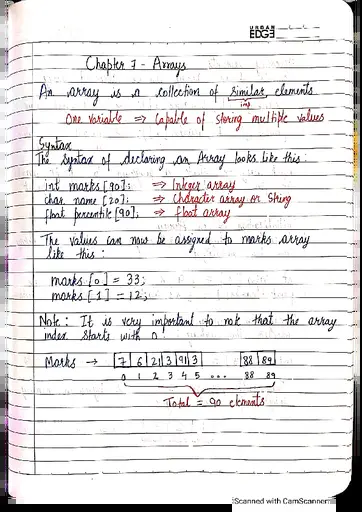 URBAN
EDGE
Chapter 7 - Arrays
An array is a collection of similar elements
imp
One variable ⇒ Capable of storing multiple values
Syntax
The syntax of declaring an Array looks like this:
int marks[90]; ⇒ Integer array
char name [20]; ⇒ Character array or string
float percentile [90]; ⇒ float array
The values can now be assigned to marks array
like this :
marks [0] = 33;
marks [1] = 12;
Note: It is very important to note that the array
index starts with 0!
Marks → 7 6 21 3 91 3 88 89
0 1 2 3 4 5 ... 88 89
Total = 90 elements
Scanned with CamScanner